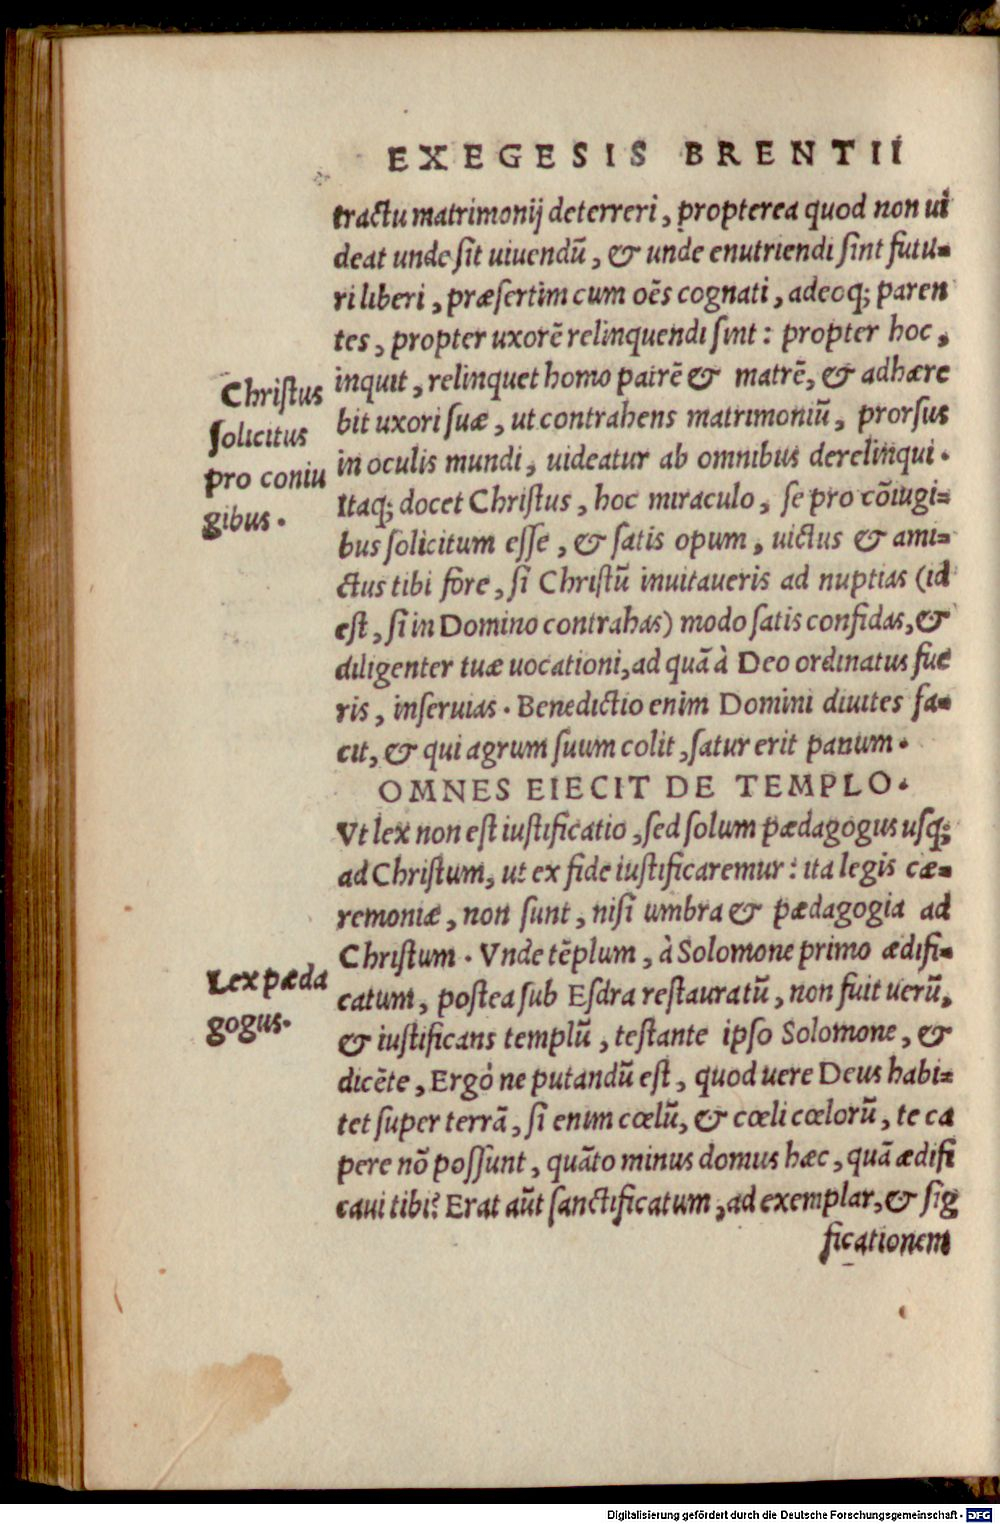 EXEGESIS BRENTII
tractu matrimonij deterreri, propterea quod non ui
deat unde sit uiuendū, & unde enutriendi sint futu-
ri liberi, præsertim cum oẽs cognati, adeoq; paren
tes, propter uxorē relinquendi sint: propter hoc,
inquit, relinquet homo patrē & matrē, & adhære
bit uxori suæ, ut contrahens matrimoniū, prorsus
in oculis mundi, uideatur ab omnibus derelinqui.
Itaq; docet Christus, hoc miraculo, se pro cōiugi-
bus solicitum esse, & satis opum, uictus & ami-
ctus tibi fore, si Christū inuitaueris ad nuptias (id
est, si in Domino contrahas) modo satis confidas, &
diligenter tuæ uocationi, ad quā à Deo ordinatus fue
ris, inseruias. Benedictio enim Domini diuites fa-
cit, & qui agrum suum colit, satur erit panum.
Christus
solicitus
pro coniu
gibus.
OMNES EIECIT DE TEMPLO.
Vt lex non est iustificatio, sed solum pædagogus usq;
ad Christum, ut ex fide iustificaremur: ita legis cæ-
remoniæ, non sunt, nisi umbra & pædagogia ad
Christum. Vnde tēplum, à Solomone primo ædifi-
catum, postea sub Esdra restauratū, non fuit uerū,
& iustificans templū, testante ipso Solomone, &
dicēte, Ergo ne putandū est, quod uere Deus habi-
tet super terrā, si enim cœlū, & cœli cœlorū, te ca
pere nō possunt, quāto minus domus hæc, quā ædifi
caui tibi? Erat aūt sanctificatum, ad exemplar, & sig
ficationem
Lex pæda
gogus.
Digitalisierung gefördert durch die Deutsche Forschungsgemeinschaft - DFG